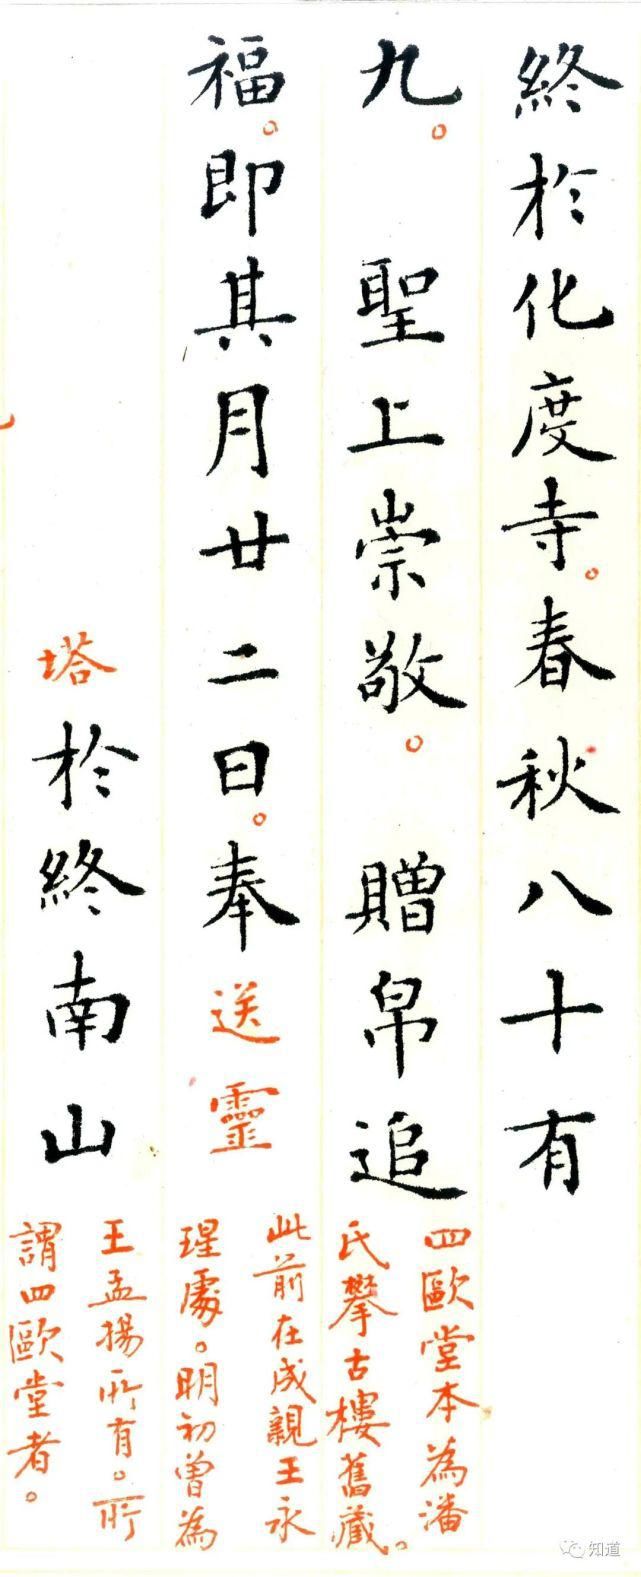 終於化度寺。春秋八十有
九。 聖上崇敬。 贈帛追
福。即其月廿二日。奉送靈
塔於終南山
四歐堂本為潘
氏攀古樓舊藏。
此前在成親王永
瑆處。明初曾為
王孟揚所有。所
謂四歐堂者。
知道